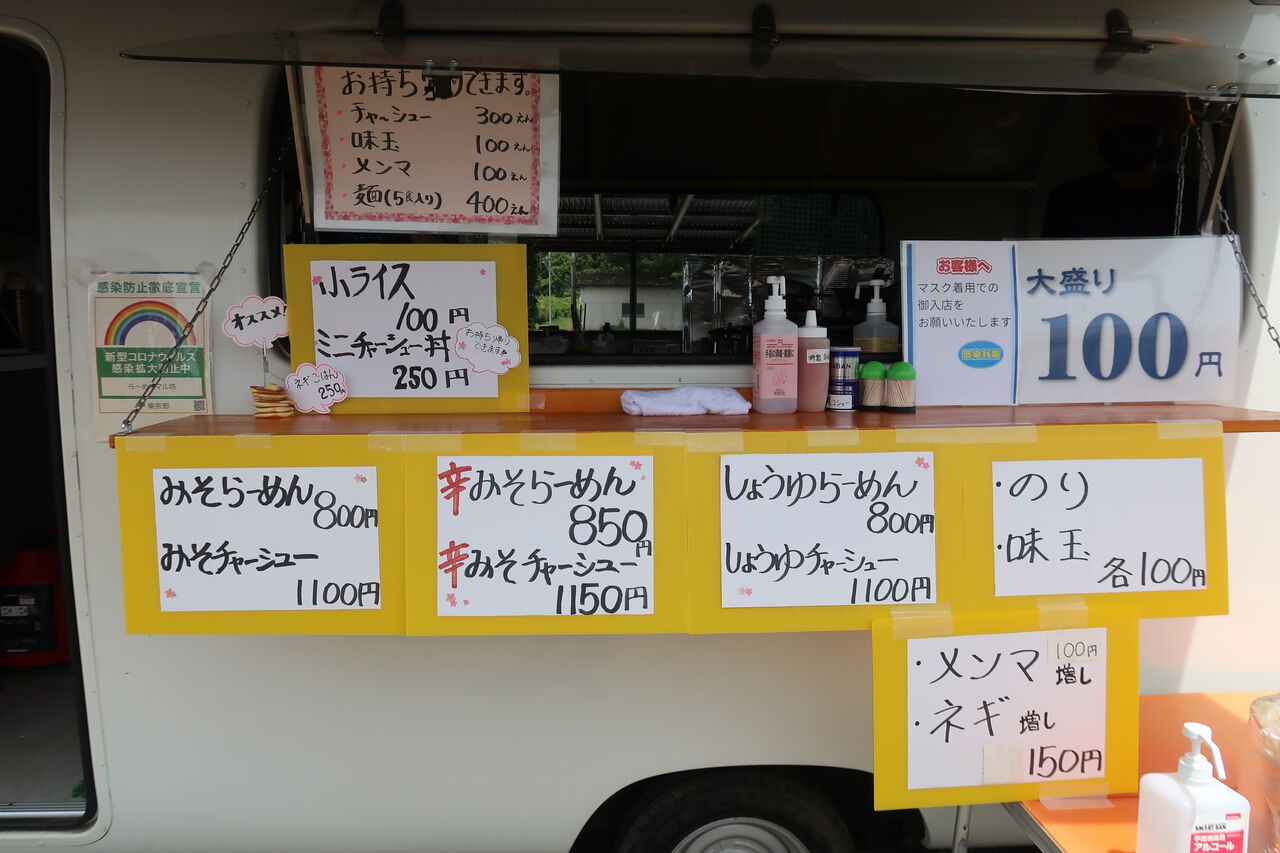 お持ち帰りできます。
チャーシュー 300えん
味玉 100えん
メンマ 100えん
麺(5食入り) 400えん
感染防止徹底宣言
新型コロナウィルス
感染拡大防止中
東京都
オススメ!
小ライス
100円
ミニチャーシュー丼
250円
お持ち帰り
できます
ネギごはん
250円
お客様へ
マスク着用での
御入店を
お願いいたします
感染対策
大盛り
100円
みそらーめん
800円
みそチャーシュー
1100円
辛みそらーめん
850円
辛みそチャーシュー
1150円
しょうゆらーめん
800円
しょうゆチャーシュー
1100円
・のり
・味玉
各100円
・メンマ 100円
増し
・ネギ 増し
150円
SMART SAN
アルコール